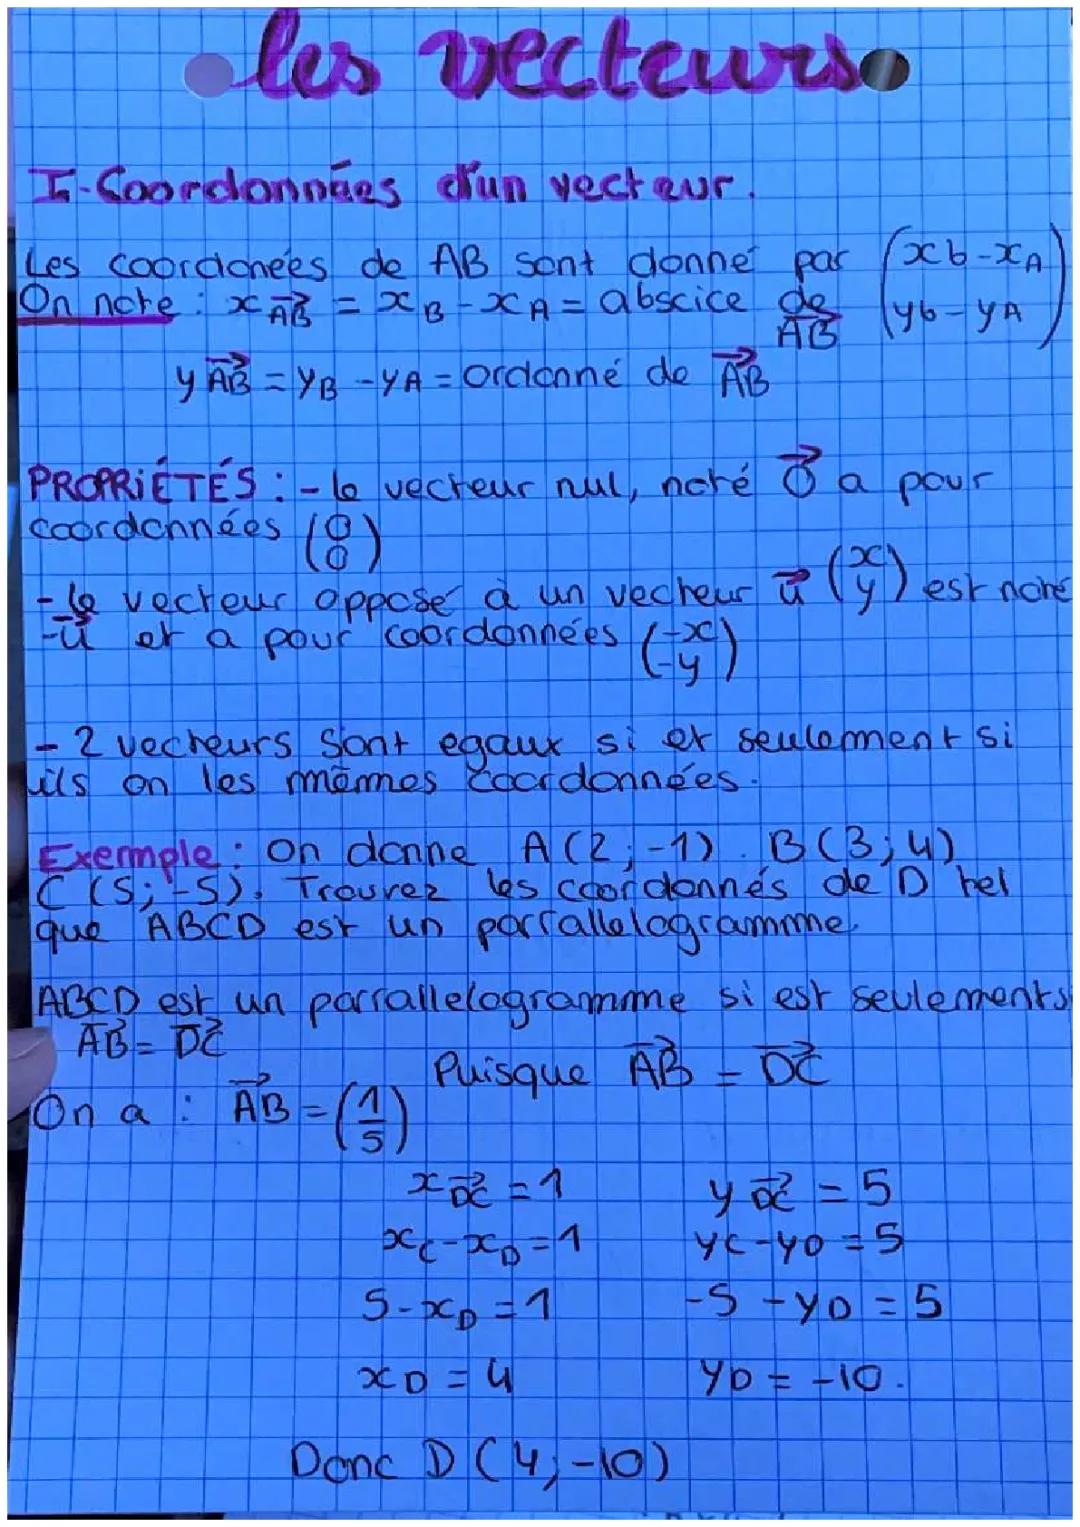 les vecteurs
I-Coordonnées d'un vecteur.
Les coordonées de AB sont donné par (xb-xA
On note : x AB→ = xB - xA = abscice de AB→ yb-yA)
y AB→ = yB - yA = ordonné de AB→
PROPRIÉTÉS : - le vecteur nul, noté 0→ a pour
coordonnées (0 0)
- le vecteur opposé à un vecteur u→ (x y) est noté
-u→ et a pour coordonnées (-x -y)
- 2 vecteurs sont egaux si et seulement si
ils on les mêmes coordonnées.
Exemple : On donne A(2;-1). B(3;4)
C (5;-5). Trouvez les coordonnés de D tel
que ABCD est un parrallelogramme
ABCD est un parrallelogramme si est seulements
AB→ = DC→
Puisque AB→ = DC→
On a : AB→ = (1 5)
x DC→ = 1 y DC→ = 5
xC - xD = 1 yC - yD = 5
5 - xD = 1 -5 - yD = 5
xD = 4 yD = -10.
Donc D (4;-10)